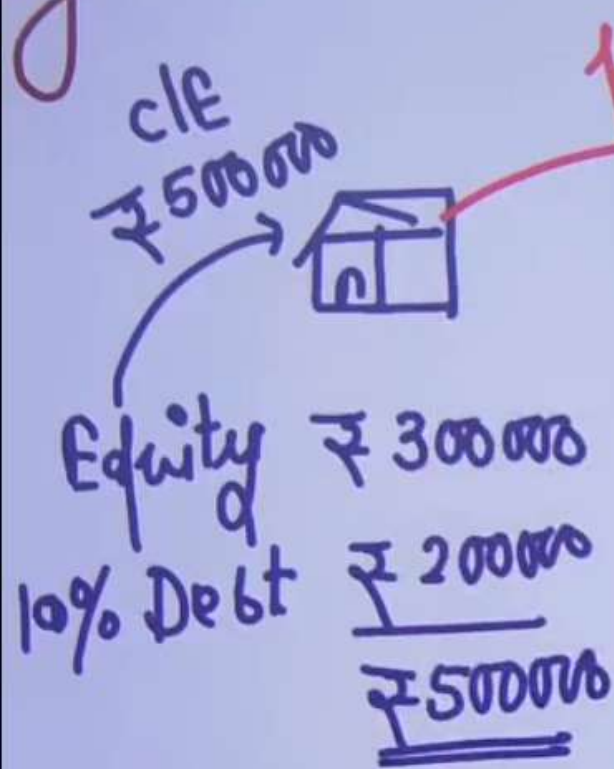 C/E
₹500000
Equity ₹ 300000
10% Debt ₹ 200000
₹500000